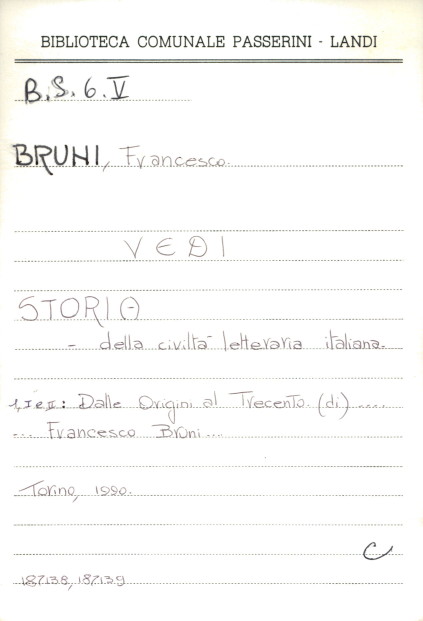 BIBLIOTECA COMUNALE PASSERINI - LANDI
B.S.6.V
BRUNI, Francesco.
VEDI
STORIA
- della civiltà letteraria italiana.
1, I e II: Dalle Origini al Trecento. (di) ....
... Francesco Bruni ...
Torino, 1990.
C
187138, 187139